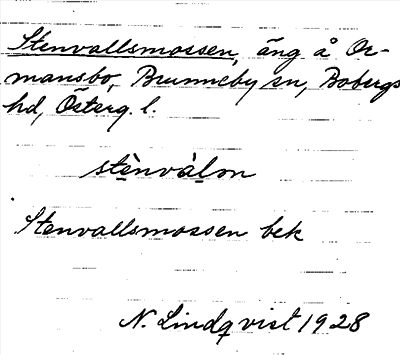 Stenvallsmossen, äng å Or-
mansbo, Brunneby sn, Bobergs
hd, Österg. l.
stènvàlon
Stenvallsmossen bek
N. Lindqvist 1928